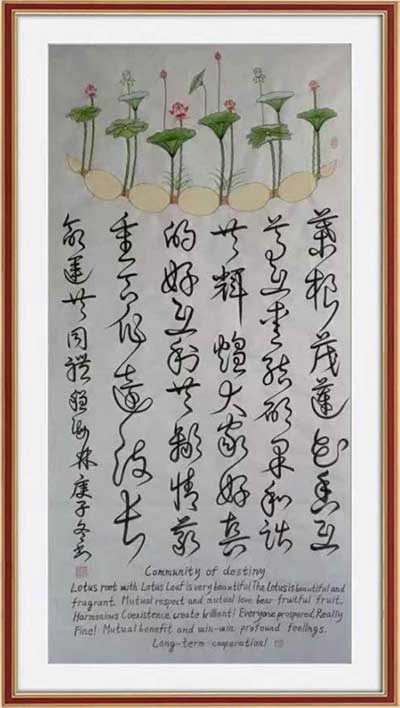 葉根茂蓮花香互
尊互愛結碩果和諧
共輝煌大家好真
的好互利共贏情義
重合作遠长
命運共同體海林庚子冬書
Community of destiny
Lotus root with Lotus Leaf is very beautiful The lotus is beautiful and
fragrant. Mutual respect and mutual love bear fruitful fruit,
Harmonious Coexistence, create brilliant! Everyone prospered, Really
Fine! Mutual benefit and win-win profound feelings.
Long-term cooperation!